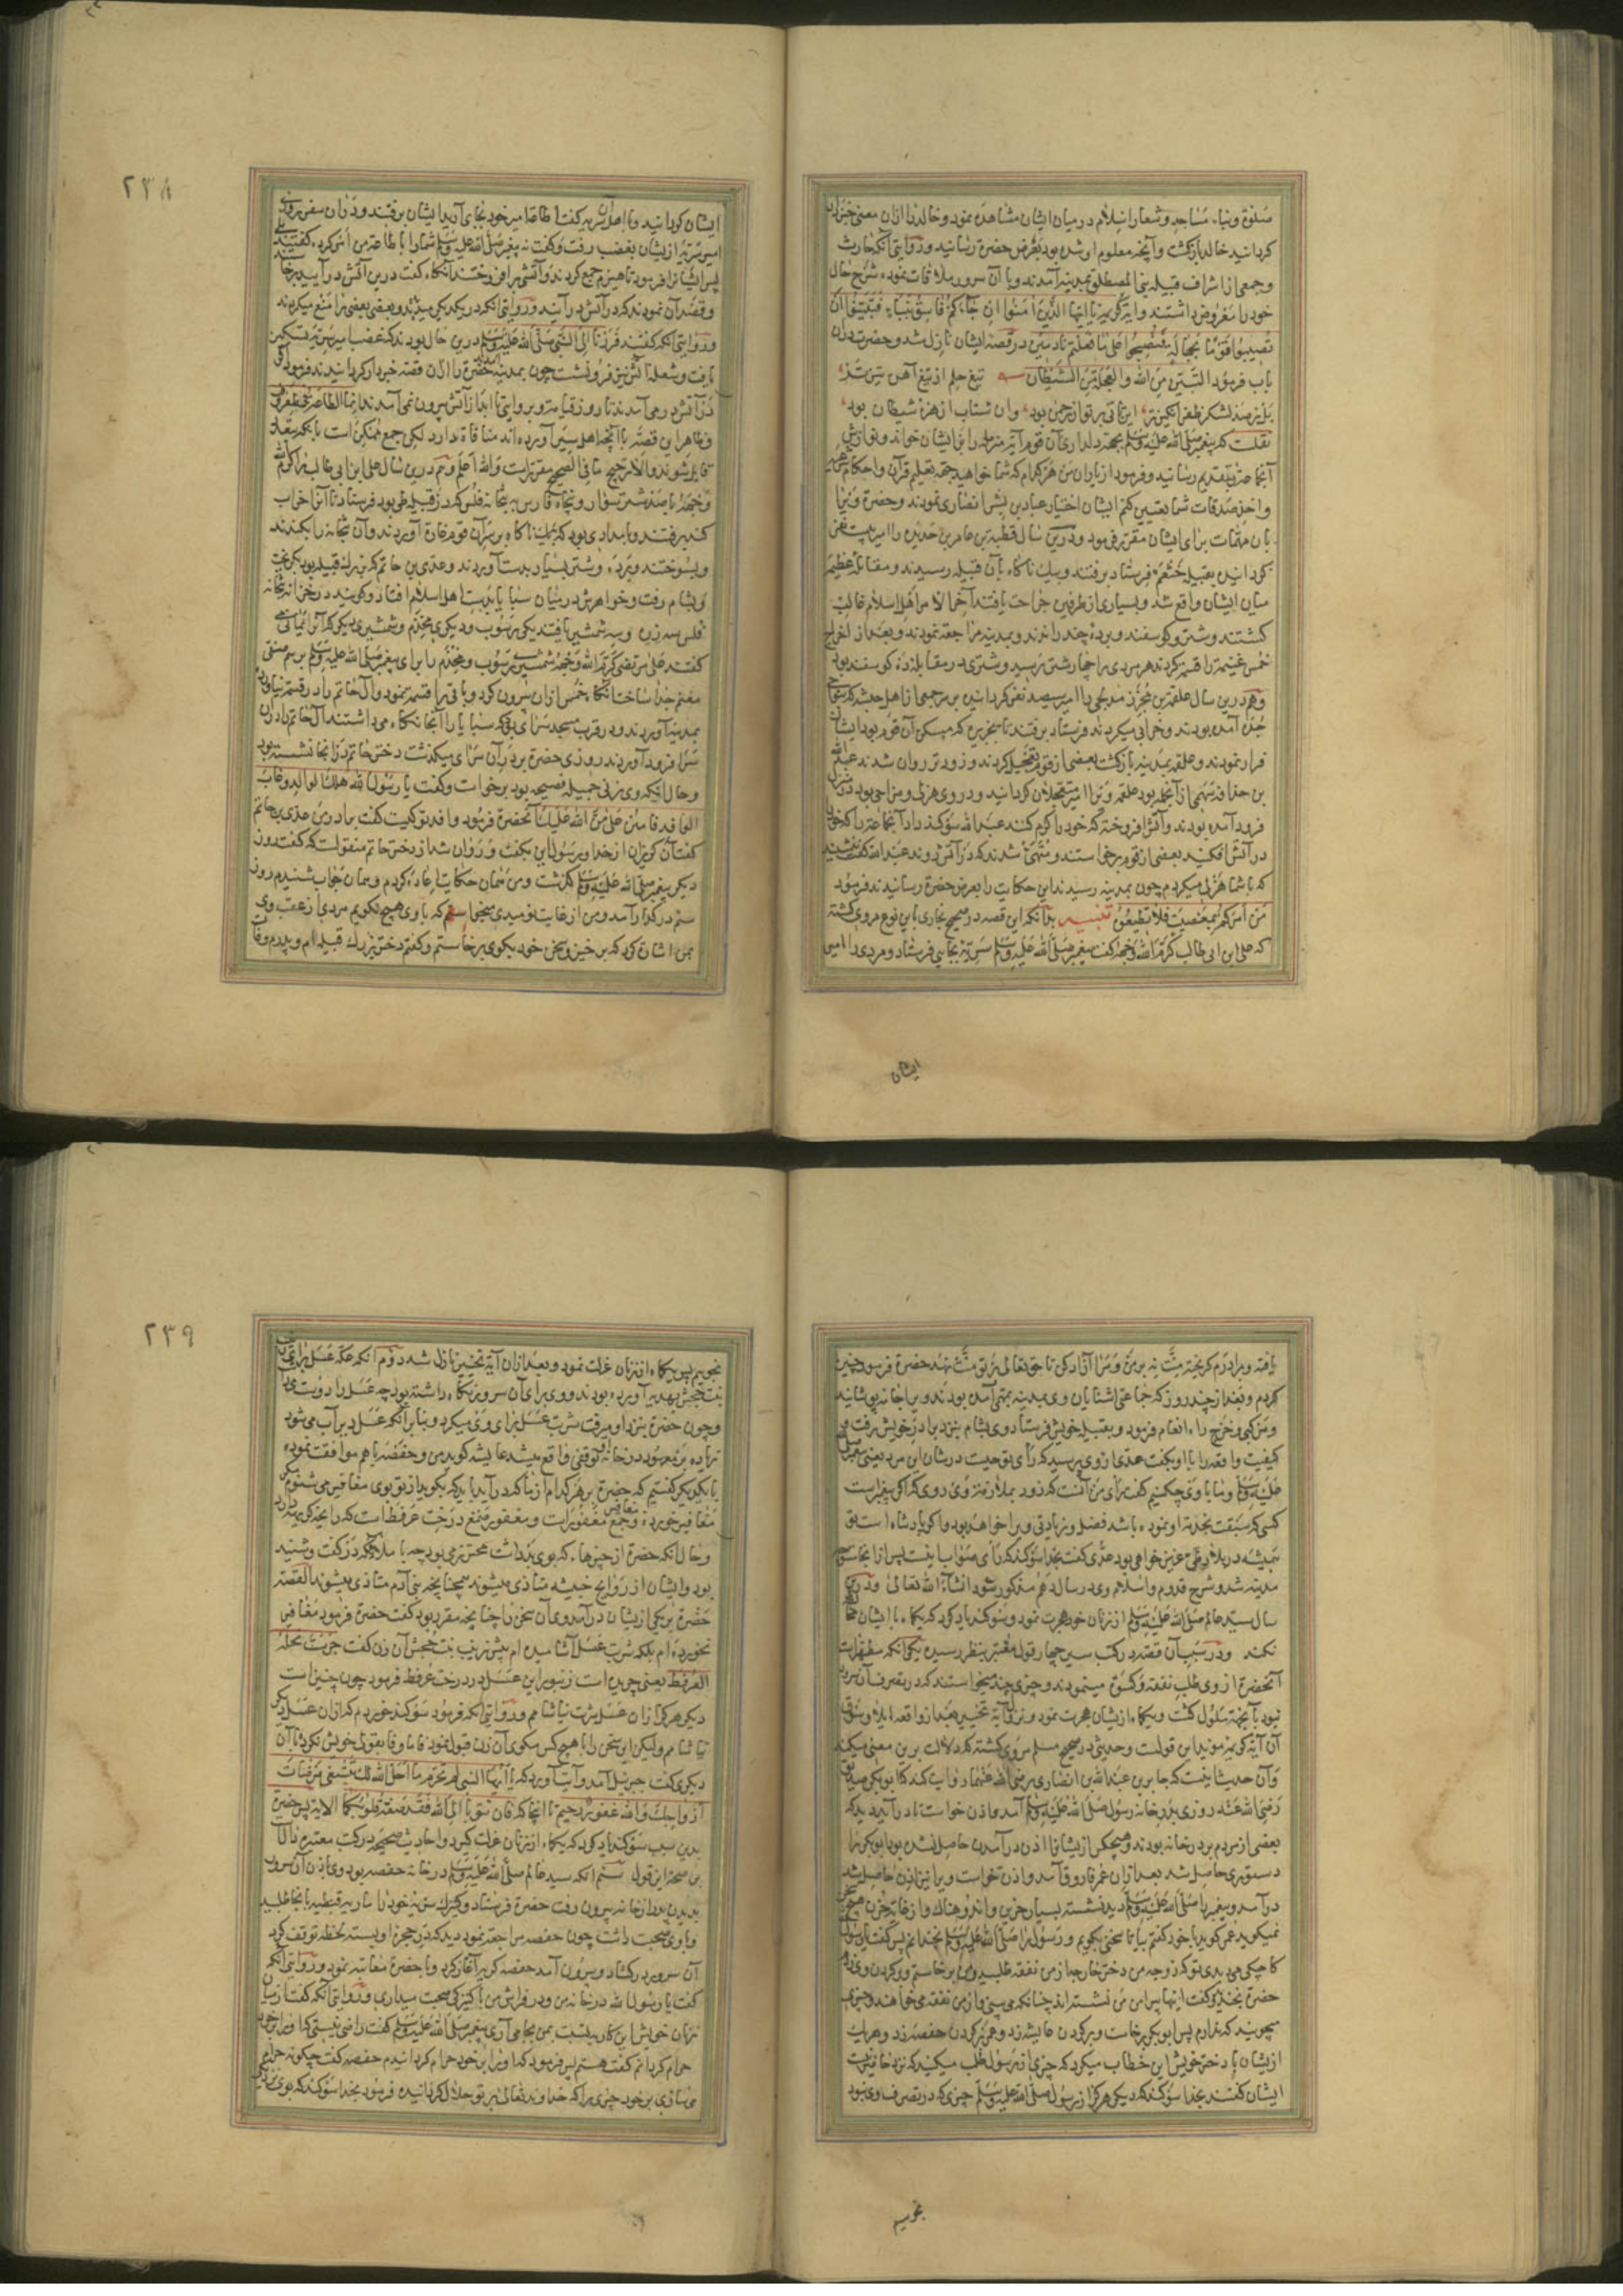 صلوة و بناء مساجد و شعار اسلام در میان ایشان مشاهده نمود و خالد را ازان معنی خبردار
کردانید خالد بازکشت و آنچه معلوم او شده بود بعرض حضرة رسانید و روایتی آنکه حارث
و جمعی از اشراف قبیله بنی المصطلق بمدینه آمدند و با آن سرور ملاقات نموده شرح حال
خود را معروض داشتند و آیة کریمه یا ایها الذین امنوا ان جاءکم فاسق بنباء فتبینوا ان
تصیبوا قوما بجهالة فتصبحوا علی ما فعلتم نادمین در قصه ایشان نازل شد و حضرت دران
باب فرمود التبین من الله و العجلة من الشیطان تیغ حلم از تیغ آهن تیزتر
بل ز صد لشکر ظفر انکیزتر این تانی پرتو رحمن بود وان شتاب از هزه شیطان بود
نقلست که پیغمبر صلی الله علیه وسلم بجهة دلداری آن قوم آیة منزله را بر ایشان خواند و نوازش
آنجماعة بتقدیم رسانید و فرمود از یاران من هر کدام که شما خواهید جهة تعلیم قرآن و احکام
و اخذ صدقات شما تعیین کنم ایشان اختیار عباد بن بشر انصاری نمودند و حضرة ویرا
بان مهمات برای ایشان مقرر فرمود و درین سال قطبة بن عامر بن حدیده را امیر بیست نفر
کردانیده بقبیله خثعم فرستاد برفتند و بیک ناکاه بآن قبیله رسیدند و مقاتله عظیم
میان ایشان واقع شد و بسیاری از طرفین جراحت یافتند آخر الامر اهل اسلام غالب
کشتند و شتر و کوسفند و برده چند راندند و بمدینه مراجعة نمودند و بعد از اخراج
خمس غنیمة را قسمة کردند هر مردی را چهار شتر رسید و شتری در مقابله ده کوسفند بود
و هم درین سال علقمة بن مجزز مدلجی را امیر سیصد نفر کردانیده بر سر جمعی از اهل حبشه که بنواحی
جده آمده بودند و خرابی میکردند فرستاد برفتند تا بجزیره که مسکن آن قوم بود ایشان
فرار نمودند و علقمه بمدینه بازکشت بعضی از قوم تعجیل کردند و زودتر روان شدند عبدالله
بن حذافه سهمی از آنجمله بود علقمه ویرا امیر مستعجلان کردانید و در وی هزلی و مزاحی بود در منزلی
فرود آمده بودند و آتش افروخته که خود را کرم کنند عبدالله سوکند داد آنجماعة را که خود را
در آتش افکنید بعضی از قوم برخاستند و متهیی شدند که در آتش روند عبدالله کفت بنشینید
که با شما هزلی میکردم چون بمدینه رسیدند این حکایت را بعرض حضرة رسانیدند فرمود
من امرکم بمعصیة فلا تطیعوه تنبیه بدانکه این قصه در صحیح بخاری باین نوع مروی کشته
که علی ابن ابی طالب کرم الله وجهه کفت پیغمبر صلی الله علیه وسلم سریه بجایی فرستاد و مردی را امیر
ایشان
۲۳۸
ایشان کردانید و با اهل آن سریه کفت اطاعة امیر خود بجای آرید ایشان برفتند و دران سفر روزی
امیر سریه از ایشان بغضب رفت و کفت نه پیغمبر صلی الله علیه وسلم شما را باطاعة من امر کرد کفتند بلی
پس ایشانرا فرمود تا هیزم جمع کردند و آتشی برافروختند آنکاه کفت درین آتش درآیید برخاستند
و قصد آن نمودند که در آتش درآیند و روایتی آنکه در یکدیکر میدیدند و بعضی بعضی را منع میکردند
و روایتی آنکه کفتند فررنا الی النبی صلی الله علیه وسلم درین حال بودند که غضب امیر سریه تسکین
یافت و شعله آتش نیز فرو نشست چون بمدینه آمدند حضرة را ازان قصه خبردار کردانیدند فرمود اکر
در آتش درمی آمدند تا روز قیامة و بروایتی ابدا از آتش بیرون نمی آمدند انما الطاعة فی المعروف
و ظاهر این قصه با آنچه اهل سیر آورده اند منافاة دارد لیکن جمع ممکن است بآنکه بتعدد
قایل شوند والا ترجیح ما فی الصحیح مقررست والله اعلم و هم درین سال علی ابن ابی طالب را کرم الله
وجهه با صد شتر سوار و پنجاه فارس به بتخانه فلس که در قبیله طی بود فرستاد تا آنرا خراب
کنند برفتند و بامدادی بود که ناکاه بر سر آن قوم غارة آوردند و آن بتخانه را بکندند
و بسوختند و برده و شتر بسیار بدست آوردند و عدی بن حاتم که بزرک قبیله بود بکریخت
و بشام رفت و خواهرش در میان سبایا بدست اهل اسلام افتاد و کویند در خزانه بتخانه
فلس سه زره و سه شمشیر یافتند یکی رسوب و دیکری مخذم و شمشیری دیکر که آنرا یمانی می
کفتند علی مرتضی کرم الله وجهه شمشیر رسوب و مخذم را برای پیغمبر صلی الله علیه وسلم برسم صفی
مغنم جدا ساخت آنکاه خمس ازان بیرون کرد و باقی را قسمة نمود و آل حاتم را در قسمة نیاورد
بمدینه آوردند و در قرب مسجد سرای بود که سبایا را آنجا نکاه می داشتند آل حاتم را دران
سرا فرود آوردند روزی حضرة بر در آن سرای میکذشت دختر حاتم در آنجا نشسته بود
و حال آنکه وی زنی جمیله فصیحه بود برخاست و کفت یا رسول الله هلک الوالد و غاب
الوافد فامنن علی من الله علیک آنحضرة فرمود وافد تو کیست کفت برادر من عدی بن حاتم
کفت آن کریزان از خدا و رسول این بکفت و روان شد از دختر حاتم منقولست که کفت روز
دیکر پیغمبر صلی الله علیه وسلم کذشت و من همان حکایت اعاده کردم و همان جواب شنیدم روز
سیم در کذار آمد و من از غایت نومیدی میخواستم که با وی هیچ نکویم مردی از عقب وی
بمن اشارة کرد که برخیز و سخن خود بکوی برخاستم و کفتم دختر بزرک قبیله ام و پدرم وفات
یافته و برادرم کریخته منت نه بر من و مرا آزاد کن تا حق تعالی بر تو منت نهد حضرة فرمود چنین
کردم و بعد از چند روز که جماعتی آشنایان وی بمدینه آمده بودند ویرا جامه پوشانید
و مرکبی و خرج راه انعام فرمود و بقبیله خویش فرستاد وی بشام بنزد برادر خویش رفت و
کیفیت واقعه را با او بکفت عدی ازوی پرسید که رأی تو چیست در شان این مرد یعنی پیغمبر صلی الله
علیه وسلم و ما با وی چکنیم کفت رأی من آنست که زود بملازمة وی روی که اکر پیغمبرست
کسی که سبقت بخدمة او نموده باشد فضل و زیادتی ویرا خواهد بود و اکر پادشاه است تو
همیشه در بلاد طی عزیز خواهی بود عدی کفت بخدا سوکند که رأی صواب اینست پس از آنجا متوجه
مدینه شد و شرح قدوم و اسلام وی در سال دهم مذکور شود انشاء الله تعالی و درین
سال سید عالم صلی الله علیه وسلم از زنان خود هجرت نمود و سوکند یاد کرد که یکماه با ایشان مخالطة
نکند و در سبب آن قصه در کتب سیر چهار قول معتبر بنظر رسیده یکی آنکه مطهرات
آنحضرة از وی طلب نفقه و کسوة مینمودند و چیزی چند میخواستند که در تصرف آن سرور
نبود بآنجهة ملول کشت و یکماه از ایشان هجرت نمود و نزول آیة تخییر بعد از واقعه ایلا و سوق
آن آیة کریمه موید این قولست و حدیثی در صحیح مسلم مروی کشته که دلالت برین معنی میکند
و آن حدیث اینست که جابر بن عبدالله انصاری رضی الله عنهما روایت کند که ابوبکر صدیق
رضی الله عنه روزی بدر خانه رسول صلی الله علیه وسلم آمد و اذن خواست تا درآید دید که
بعضی از مردم بر در خانه بودند و هیچکس از ایشانرا اذن درآمدن حاصل نشده بود ابوبکر را
دستوری حاصل شد بعد ازان عمر فاروق آمد و اذن خواست ویرا نیز اذن حاصل شد
درآمد و پیغمبر را صلی الله علیه وسلم دید نشسته بسیار حزین و اندوهناک و از غایة حزن هیچ سخن
نمیکوید عمر کوید با خود کفتم بیا تا سخنی بکویم و رسول را صلی الله علیه وسلم بخندانم پس کفت یا رسول الله
کاچکی می دیدی تو که زوجه من دختر خارجه از من نفقه طلبید و من برخاستم و بر کردن وی زدم
حضرة بخندید و کفت اینها پیرامن من نشسته اند چنانکه می بینی و از من نفقه می خواهند و چیزی
میجویند که ندارم پس ابوبکر برخاست و بر کردن عایشه زد و عمر بر کردن حفصه زد و هر یک
از ایشان با دختر خویش این خطاب میکرد که چیزی از رسول طلب میکنید که نزد او نیست
ایشان کفتند بخدا سوکند که دیکر هرکز از رسول صلی الله علیه وسلم چیزی که در تصرف وی نبود
نجوییم
۲۳۹
نجوییم پس یکماه از زنان عزلت نمود و بعد ازان آیة تخییر نازل شد دوم آنکه عکه عسل برای زینب
بنت جحش بهدیه آورده بودند و وی برای آن سرور نکاه داشته بود چه عسل را دوست می داشت
و چون حضرة بنزد او میرفت شربت عسل برای وی میکرد و بنا برآنکه عسل دیر آب می شود
زیاده بر معهود در خانه او توقفی واقع میشد عایشه کوید من و حفصه باهم موافقت نموده
با یکدیکر کفتیم که حضرة بر هر کدام از ما که درآید باید که بکوید از تو بوی مغافیر می شنوم
مغافیر خورده و مغافیر جمع مغفورست و مغفور صمغ درخت عرفط است که رایحه کریهه دارد
و حال آنکه حضرة از چیزها که بوی بد داشت محترز می بود چه با ملایکه در کفت و شنید
بود و ایشان از روایح خبیثه متاذی میشوند همچنانچه بنی آدم متاذی میشوند القصه
حضرة بر یکی از ایشان درآمد وی آن سخن را چنانچه مقرر بود کفت حضرة فرمود مغافیر
نخورده ام بلکه شربت عسل آشامیده ام پیش زینب بنت جحش آن زن کفت جرست نحله
العرفط یعنی چریده است زنبور این عسل در درخت عرفط فرمود چون چنین است
دیکر هرکز ازان عسل شربت نیاشامم و روایتی آنکه فرمود سوکند خوردم که ازان عسل دیکر
نیاشامم ولیکن این سخن را با هیچکس مکوی آن زن قبول نمود فاما وفا بقول خویش نکرد و با آن
دیکری کفت جبریل آمد و آیت آورد که یا ایها النبی لم تحرم ما احل الله لک تبتغی مرضات
ازواجک والله غفور رحیم تا اینجا که فان تتوبا الی الله فقد صغت قلوبکما الایة پس حضرة
بدین سبب سوکند یاد کرد که یکماه از زنان عزلت کیرد و احادیث صحیحه در کتب معتبره دالست
بر صحة این قول سیم آنکه سید عالم صلی الله علیه وسلم در خانه حفصه بود وی باذن آن سرور
بدیدن پدر از خانه بیرون رفت حضرة فرستاد و کنیزک سریه خود را ماریه قبطیه بآنجا طلبید
و با وی صحبت داشت چون حفصه مراجعة نمود دید که در حجره او بسته لحظه توقف کرد
آن سرور در بکشاد و بیرون آمد حفصه کریه آغاز کرد و با حضرة معاتبه نمود و روایتی آنکه
کفت یا رسول الله در خانه من و در فراش من با کنیزکی صحبت میداری و روایتی آنکه کفت از میان
زنان خویش این کار نسبت بمن بجا می آری پیغمبر صلی الله علیه وسلم کفت راضی نیستی که او را بر خود
حرام کردانم کفت هستم پس فرمود که او را بر خود حرام کردانیدم حفصه کفت چکونه حرام
می سازی بر خود چیزی را که خداوند تعالی بر تو حلال کردانیده فرمود بخدا سوکند که بوی نزدیکی